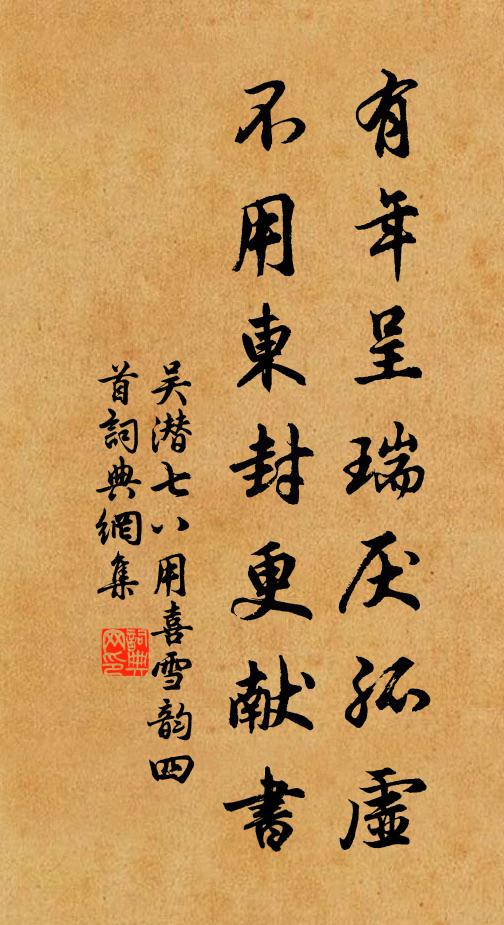 有年呈瑞厌孤虚
不用東封更献書
吴潜七八用喜雪韵四
首詞典網集
詞典网印